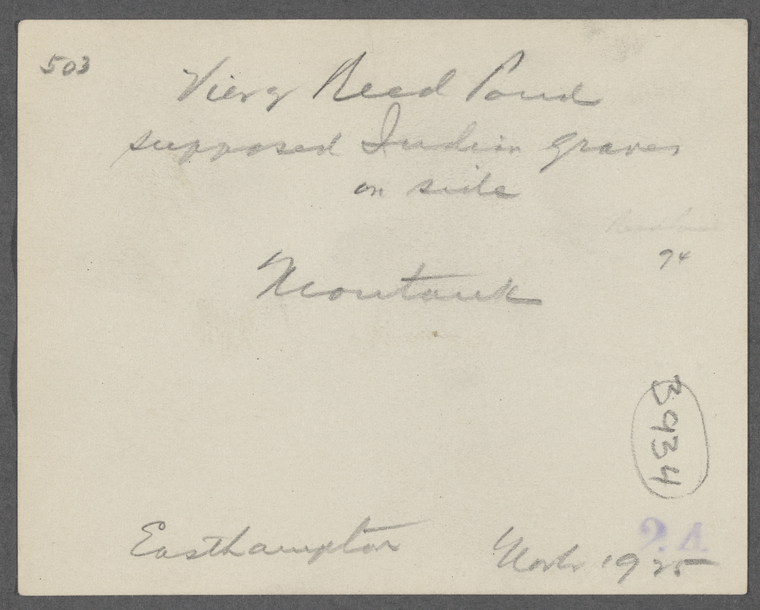 503
View Reed Pond
supposed Indian graves
on side
94
Montauk
B934
24
Easthampton
1925